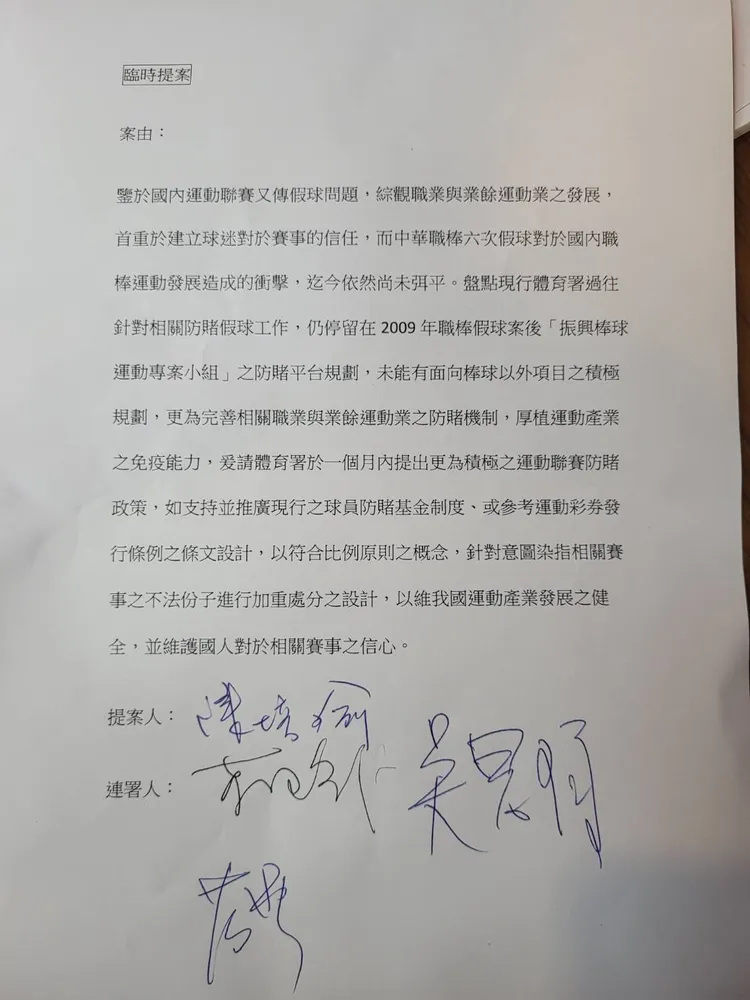 臨時提案
案由：
鑒於國內運動聯賽又傳假球問題，綜觀職業與業餘運動業之發展，
首重於建立球迷對於賽事的信任，而中華職棒六次假球對於國內職
棒運動發展造成的衝擊，迄今依然尚未弭平。盤點現行體育署過往
針對相關防賭假球工作，仍停留在 2009 年職棒假球案後「振興棒球
運動專案小組」之防賭平台規劃，未能有面向棒球以外項目之積極
規劃，更為完善相關職業與業餘運動業之防賭機制，厚植運動產業
之免疫能力，爰請體育署於一個月內提出更為積極之運動聯賽防賭
政策，如支持並推廣現行之球員防賭基金制度、或參考運動彩券發
行條例之條文設計，以符合比例原則之概念，針對意圖染指相關賽
事之不法份子進行加重處分之設計，以維我國運動產業發展之健
全，並維護國人對於相關賽事之信心。
提案人：陳培瑜
連署人：